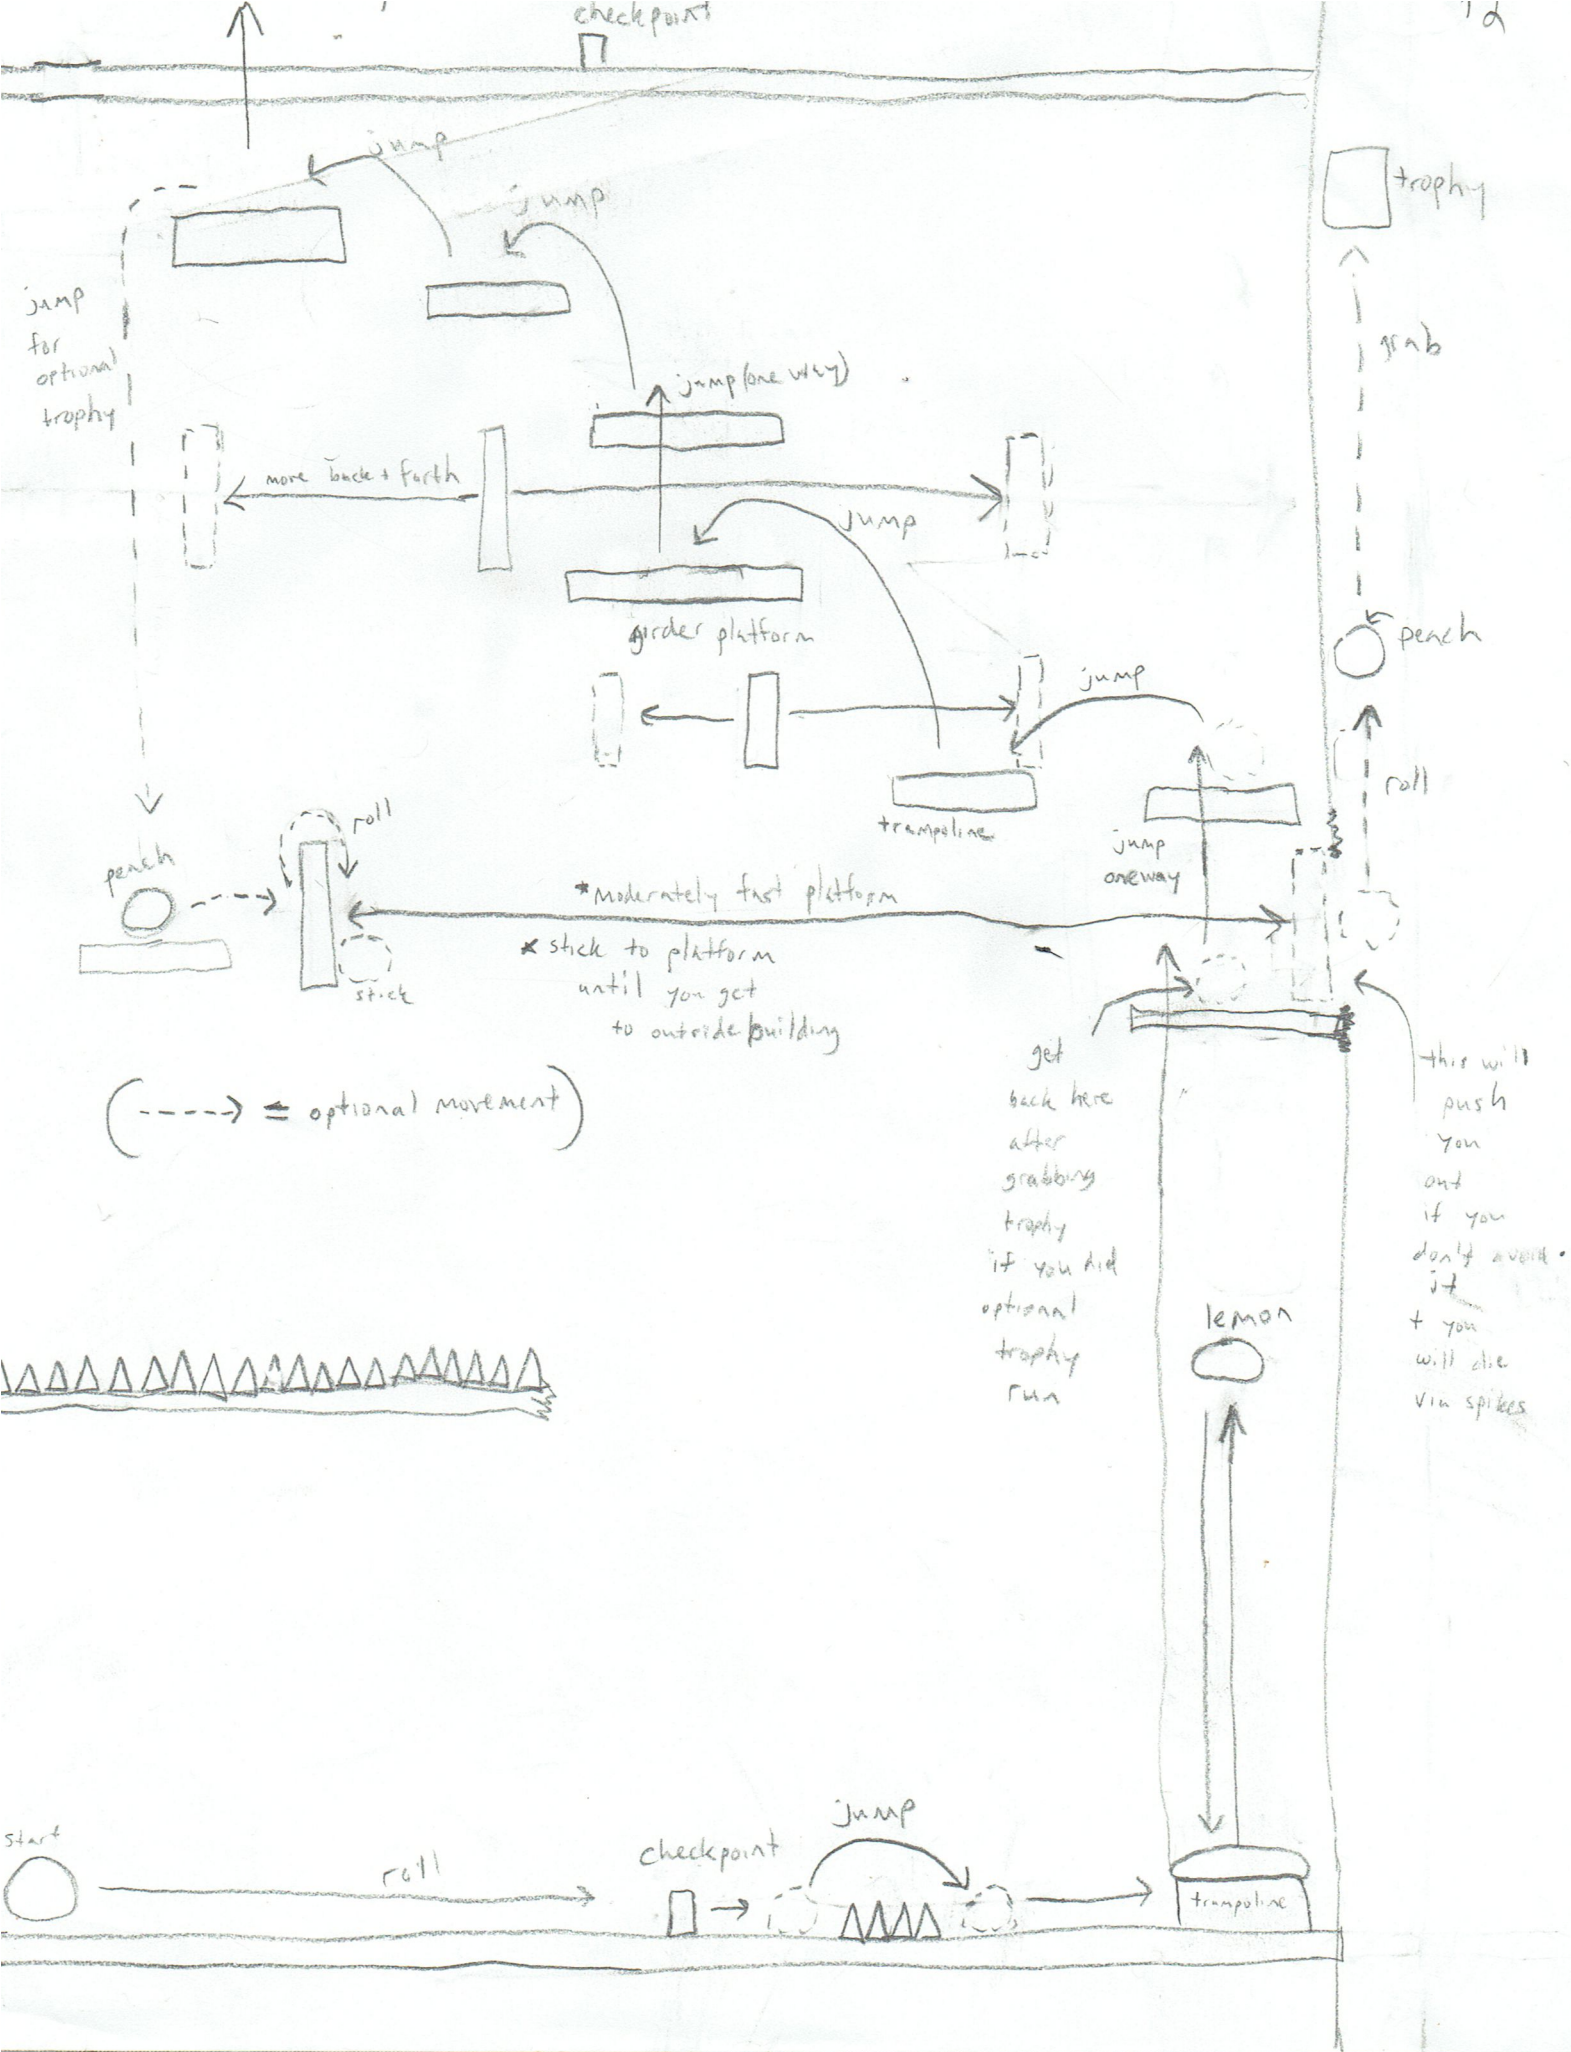 checkpoint
12
jump
trophy
jump
jump
for
optional
trophy
grab
jump (one way)
move back + forth
jump
girder platform
peach
jump
roll
trampoline
roll
jump
oneway
peach
*Moderately fast platform
* stick to platform
until you get
to outside building
stick
get
back here
after
grabbing
trophy
if you did
optional
trophy
run
this will
push
you
out
if you
don't avoid
it
+ you
will die
via spikes
(-----> = optional movement)
lemon
start
roll
checkpoint
jump
trampoline